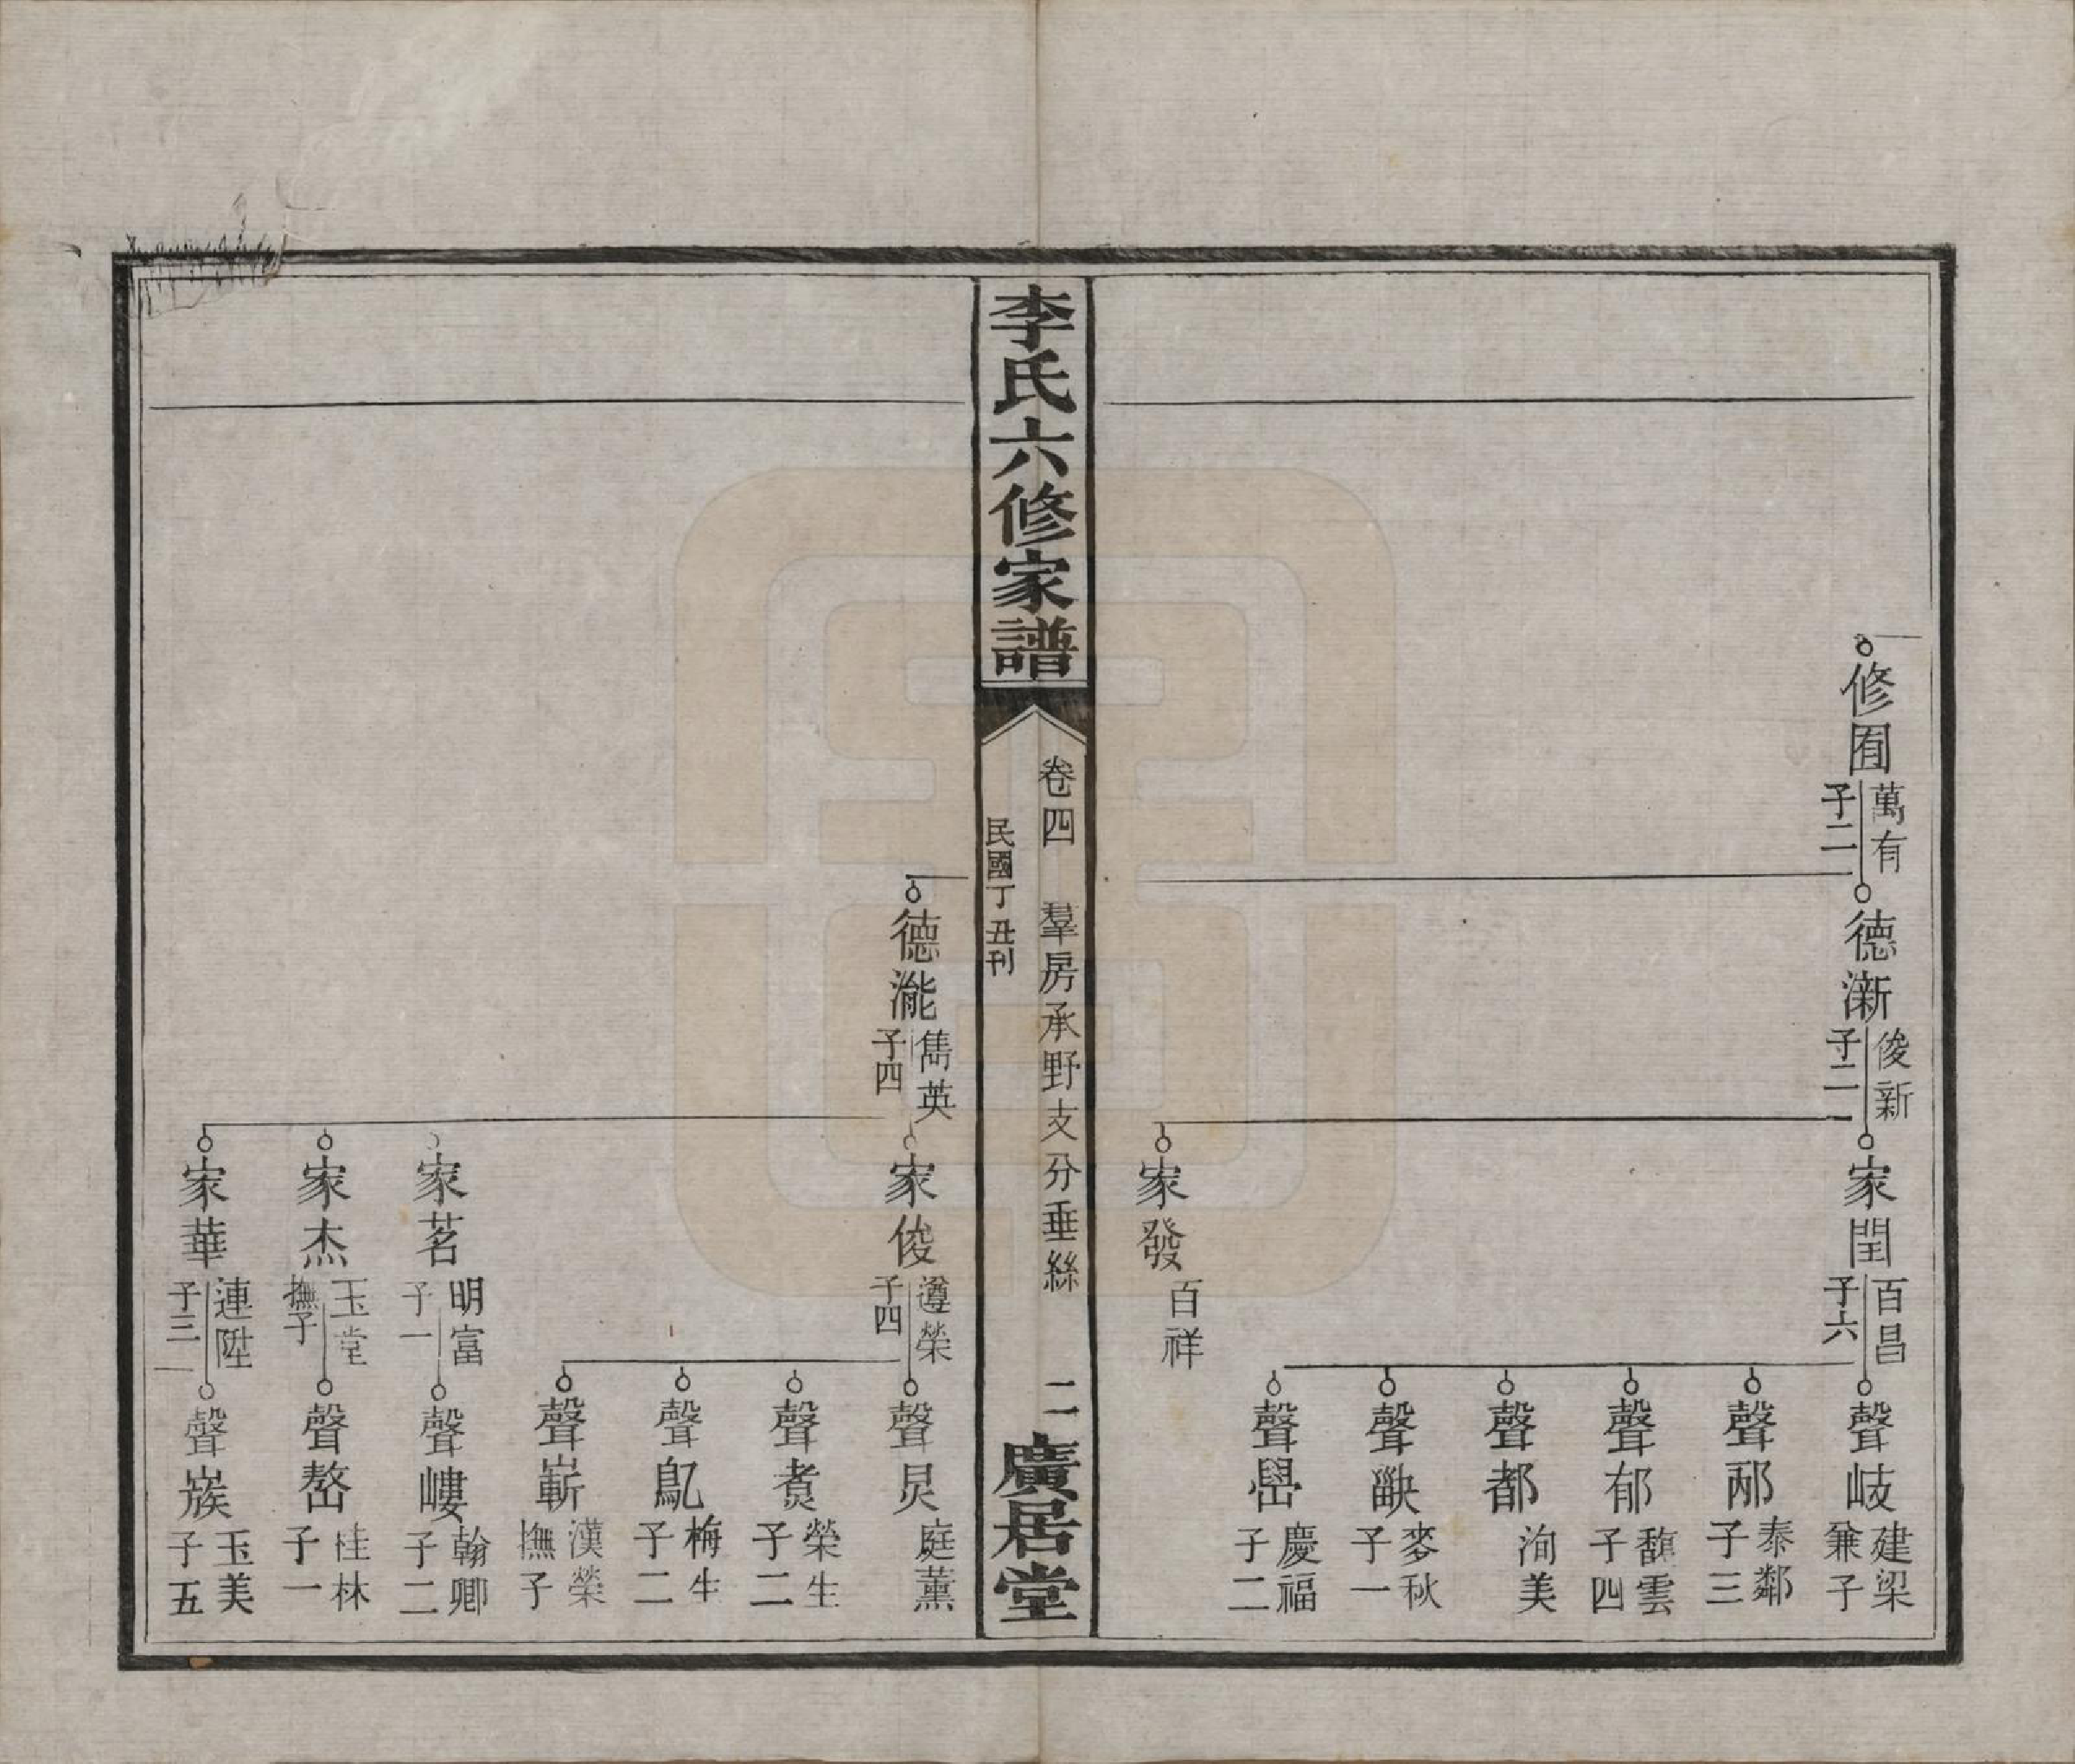 修囿
萬有
子二
德漸
俊新
子二
家閏
百昌
子六
聲岐
建梁
兼子
聲邴
泰鄰
子三
聲郁
馥雲
子四
聲都
洵美
聲
麥秋
子一
聲嶨
慶福
子二
家發
百祥
李氏六修家譜
卷四 羣房承野支分垂絲 二
民國丁丑刊
廣居堂
德瀧
雋英
子四
家俊
遵榮
子四
聲炅
庭薰
聲煑
榮生
子二
聲
梅生
子二
聲嶄
漢榮
撫子
家茗
明富
子一
聲嶁
翰卿
子二
家杰
玉堂
撫子
聲嶅
桂林
子一
家華
連陞
子三
聲嶯
玉美
子五